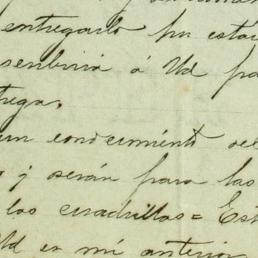 entregarlo pu está
scribirá á Ud pa
trega.
un conocimiento del
y serán para las
las cuadrillas = Est
Ud en mi anterior